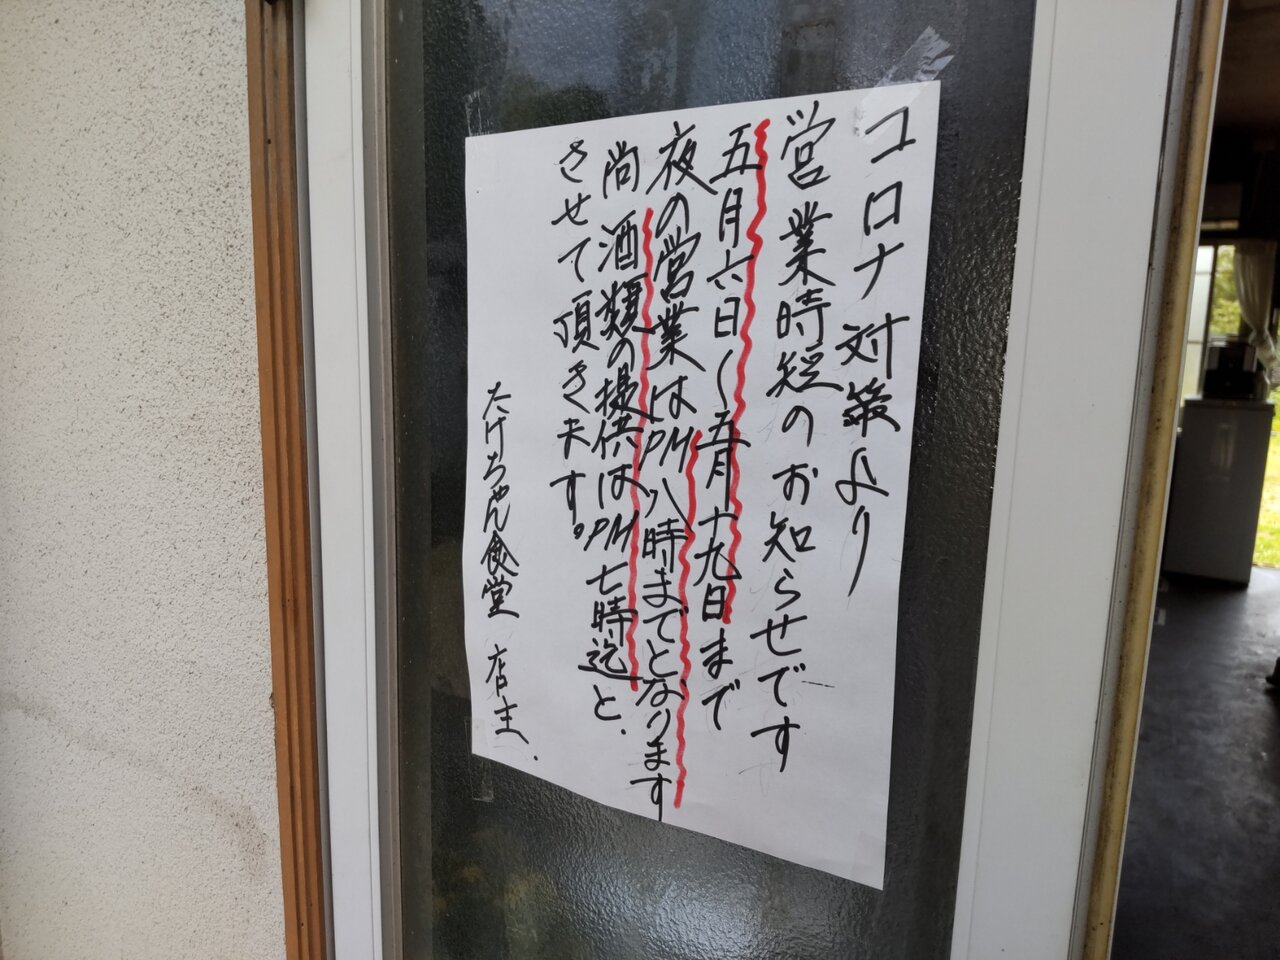 コロナ対策より
営業時短のお知らせです
五月六日～五月十九日まで
夜の営業はPM八時までとなります
尚酒類の提供はPM七時迄と、
させて頂きます。
たけちゃん食堂 店主、